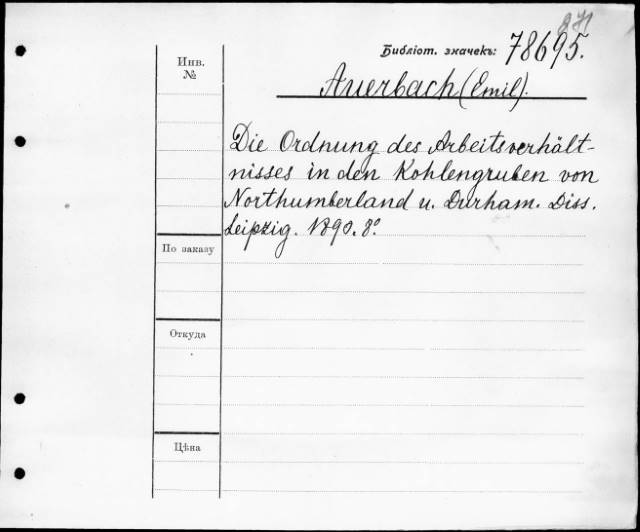 871
Библіот. значекъ: 78695.
Инв.
№
Auerbach (Emil).
Die Ordnung des Arbeitsverhält-
nisses in den Kohlengruben von
Northumberland u. Durham. Diss.
Leipzig. 1890. 8º
По заказу
Откуда
Цѣна